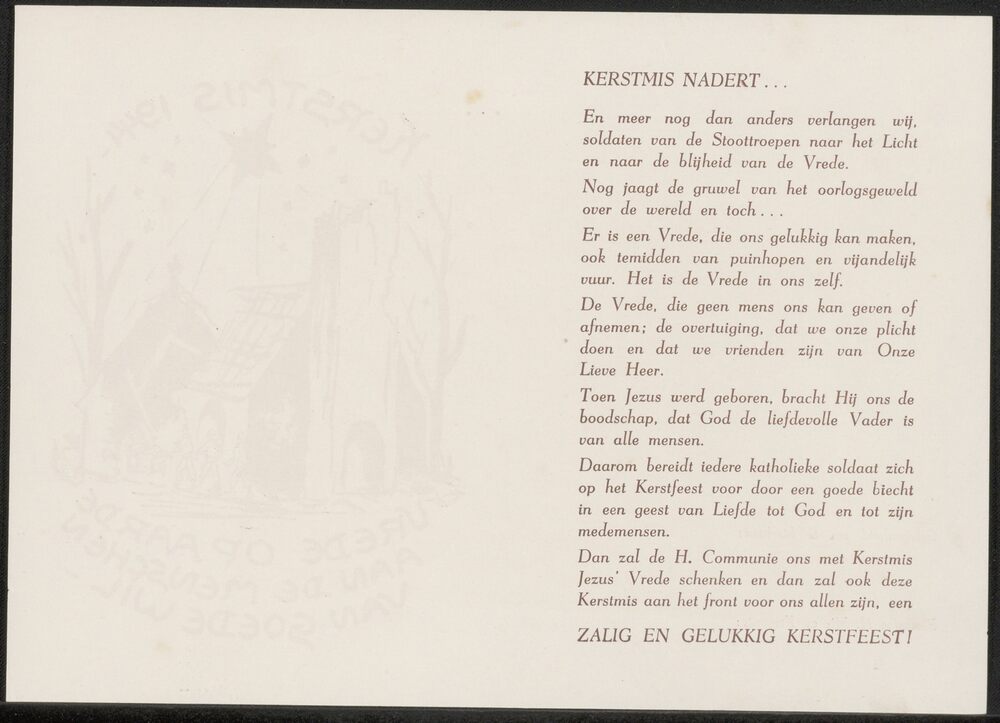 KERSTMIS NADERT . . .
En meer nog dan anders verlangen wij,
soldaten van de Stoottroepen naar het Licht
en naar de blijheid van de Vrede.
Nog jaagt de gruwel van het oorlogsgeweld
over de wereld en toch . . .
Er is een Vrede, die ons gelukkig kan maken,
ook temidden van puinhopen en vijandelijk
vuur. Het is de Vrede in ons zelf.
De Vrede, die geen mens ons kan geven of
afnemen; de overtuiging, dat we onze plicht
doen en dat we vrienden zijn van Onze
Lieve Heer.
Toen Jezus werd geboren, bracht Hij ons de
boodschap, dat God de liefdevolle Vader is
van alle mensen.
Daarom bereidt iedere katholieke soldaat zich
op het Kerstfeest voor door een goede biecht
in een geest van Liefde tot God en tot zijn
medemensen.
Dan zal de H. Communie ons met Kerstmis
Jezus' Vrede schenken en dan zal ook deze
Kerstmis aan het front voor ons allen zijn, een
ZALIG EN GELUKKIG KERSTFEEST!
KERSTMIS
VREDE OP AARDE
AAN DE MENSCHEN
VAN GOEDE WIL